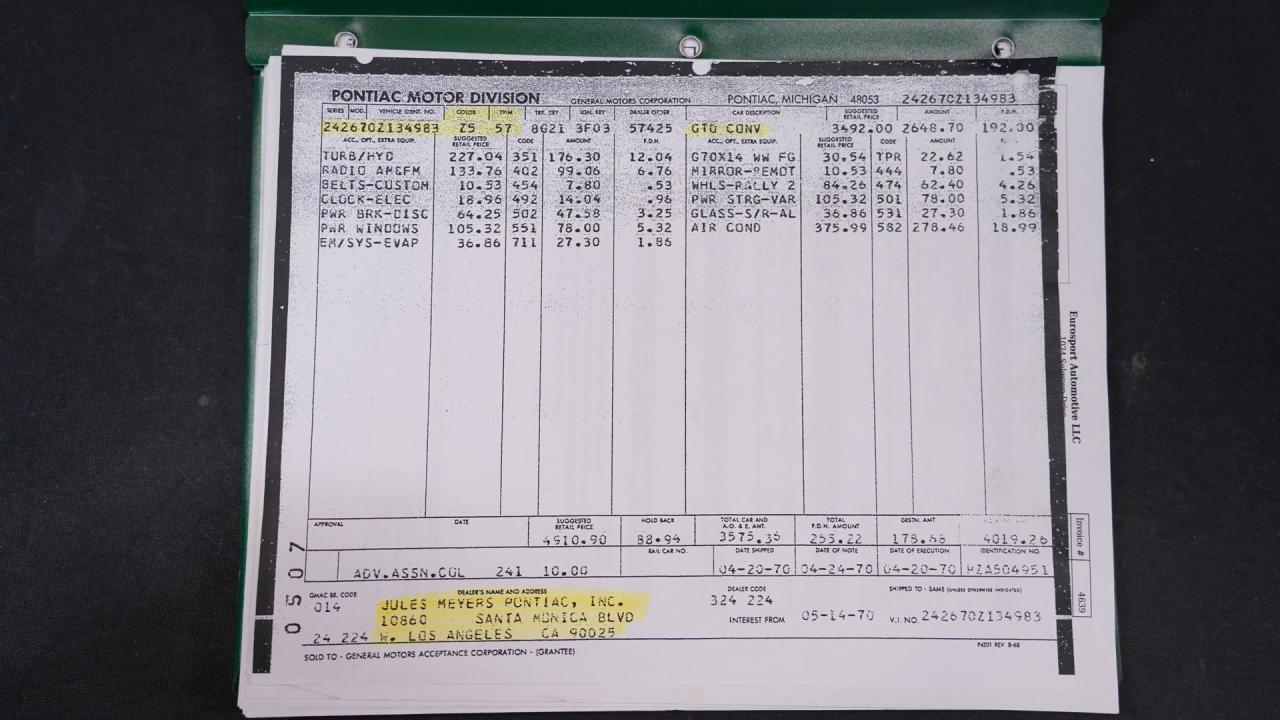 PONTIAC MOTOR DIVISION GENERAL MOTORS CORPORATION PONTIAC, MICHIGAN 48053 242670Z134983
SERIES MOD. VEHICLE IDENT. NO. COLOR TRIM TRK. KEY IGN. KEY DEALER ORDER CAR DESCRIPTION SUGGESTED RETAIL PRICE AMOUNT P.D.H.
242670Z134983 Z5 57 8G21 3F03 57425 GTO CONV 3492.00 2648.70 192.00
ACC., OPT., EXTRA EQUIP. SUGGESTED RETAIL PRICE CODE AMOUNT P.D.H. ACC., OPT., EXTRA EQUIP. SUGGESTED RETAIL PRICE CODE AMOUNT
TURB/HYD 227.04 351 176.30 12.04 G70X14 WW FG 30.54 TPR 22.62 1.54
RADIO AM&FM 133.76 402 99.06 6.76 MIRROR-REMOT 10.53 444 7.80 .53
BELTS-CUSTOM 10.53 454 7.80 .53 WHLS-RALLY 2 84.26 474 62.40 4.26
CLOCK-ELEC 18.96 492 14.04 .96 PWR STRG-VAR 105.32 501 78.00 5.32
PWR BRK-DISC 64.25 502 47.58 3.25 GLASS-S/R-AL 36.86 531 27.30 1.86
PWR WINDOWS 105.32 551 78.00 5.32 AIR COND 375.99 582 278.46 18.99
EM/SYS-EVAP 36.86 711 27.30 1.86
APPROVAL DATE SUGGESTED RETAIL PRICE HOLD BACK TOTAL CAR AND A.O. & E. AMT. TOTAL P.D.H. AMOUNT DESTN. AMT.
4910.90 88.94 3575.36 255.22 178.68 4019.26
RAIL CAR NO. DATE SHIPPED DATE OF NOTE DATE OF EXECUTION IDENTIFICATION NO.
ADV.ASSN.COL 241 10.00 04-20-70 04-24-70 04-20-70 HZA504951
GMAC BR. CODE DEALER'S NAME AND ADDRESS DEALER CODE SHIPPED TO - SAME (UNLESS OTHERWISE INDICATED)
014 JULES MEYERS PONTIAC, INC. 324 224
10860 SANTA MONICA BLVD INTEREST FROM 05-14-70 V.I. NO. 242670Z134983
24 224 W. LOS ANGELES CA 90025
SOLD TO - GENERAL MOTORS ACCEPTANCE CORPORATION - (GRANTEE) P4201 REV 8-68
0507
Eurosport Automotive LLC
Invoice #
4639